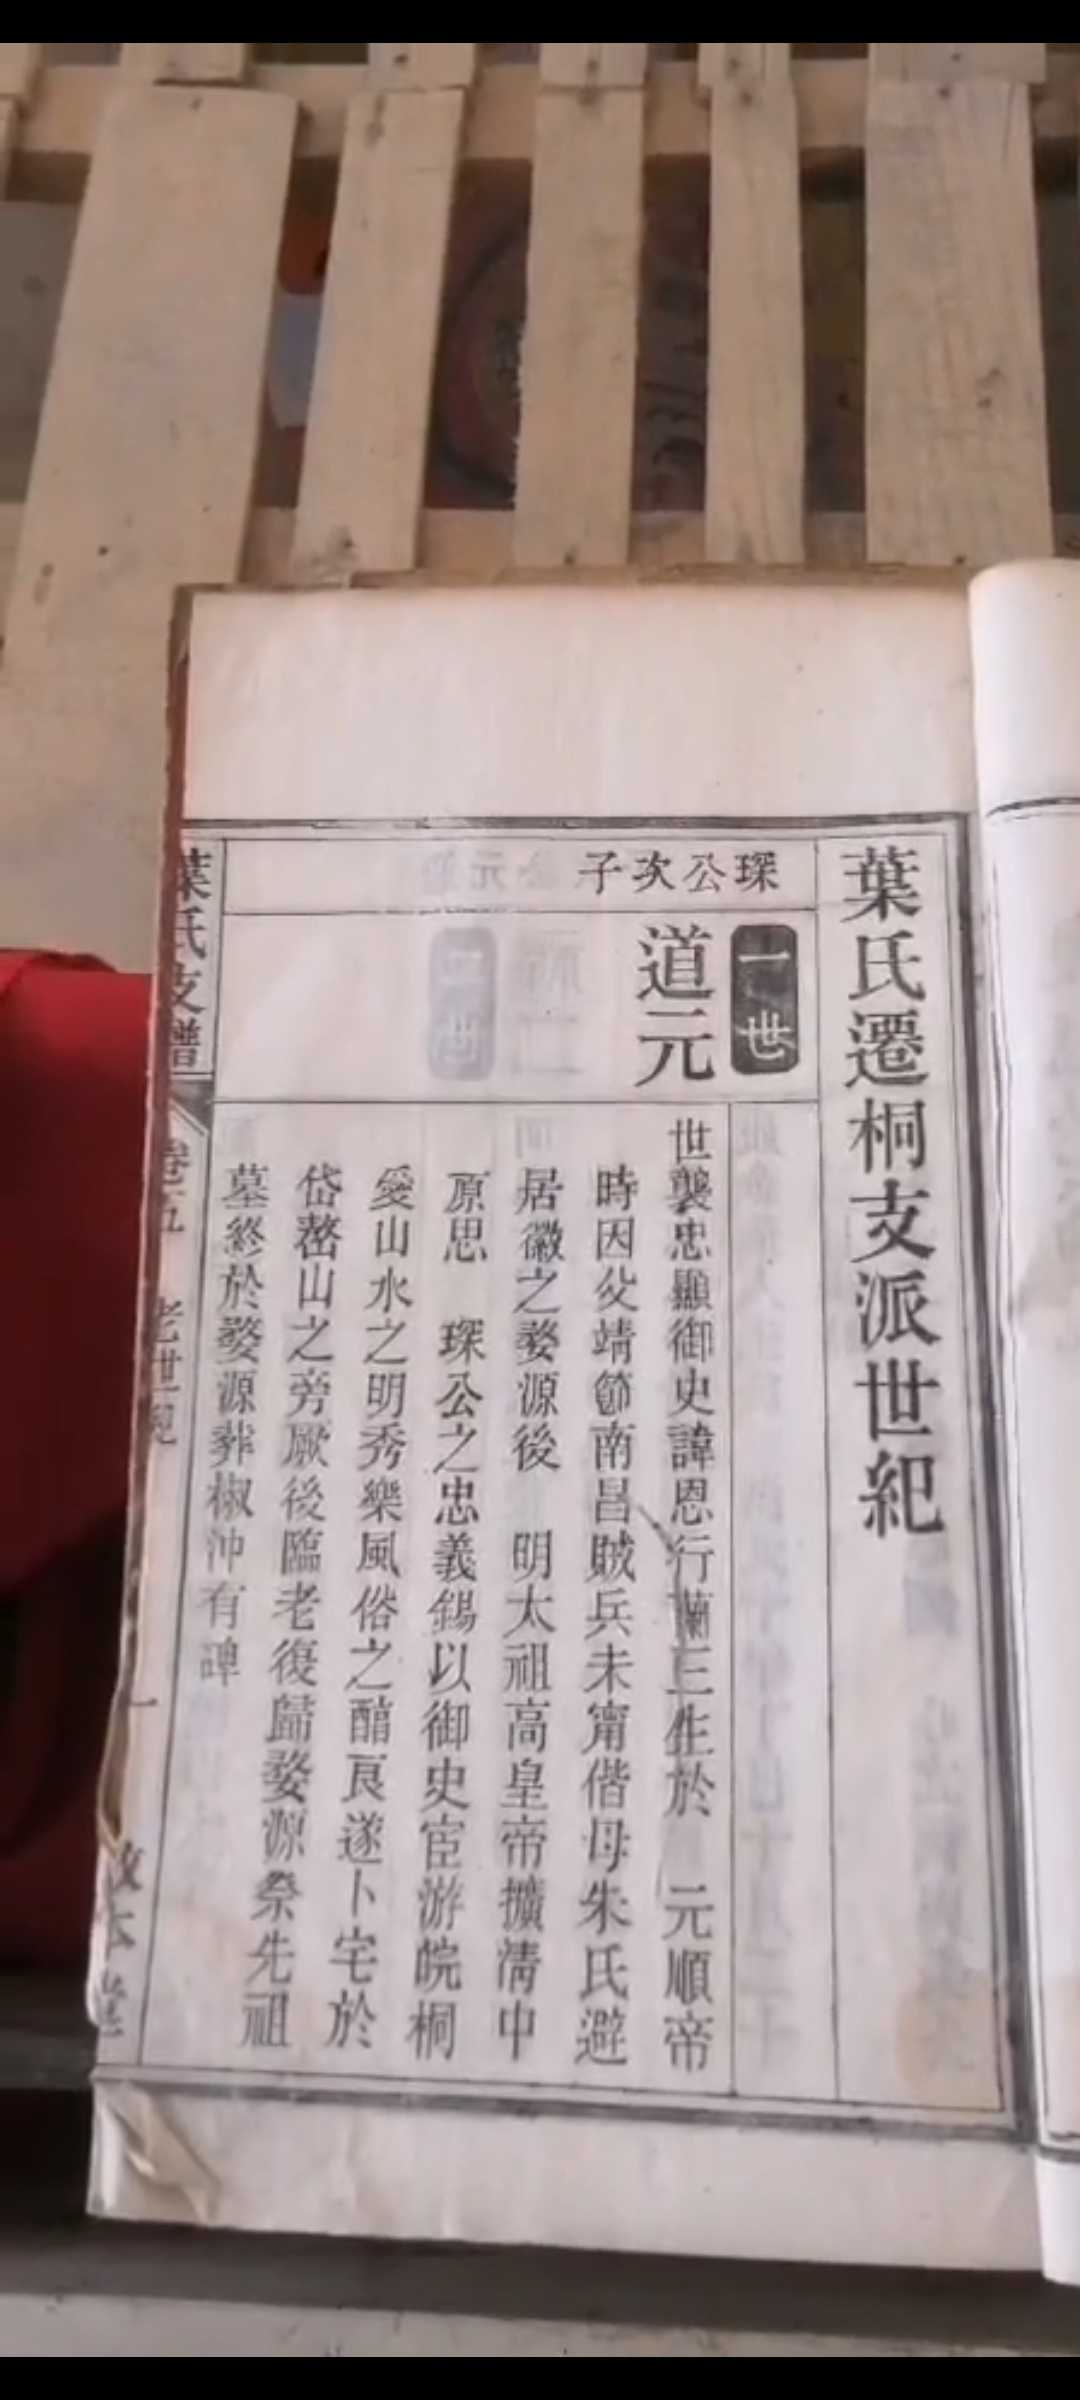 葉氏遷桐支派世紀
琛公次子
一世
道元
世襲忠顯御史諱恩行蘭三生於 元順帝
時因父靖節南昌賊兵未甯偕母朱氏避
居徽之婺源後 明太祖高皇帝擴清中
原思 琛公之忠義錫以御史宦游皖桐
愛山水之明秀樂風俗之醕良遂卜宅於
岱嶅山之旁厥後臨老復歸婺源祭先祖
墓終於婺源葬椒沖有譚
葉氏支譜
卷五 老世 一